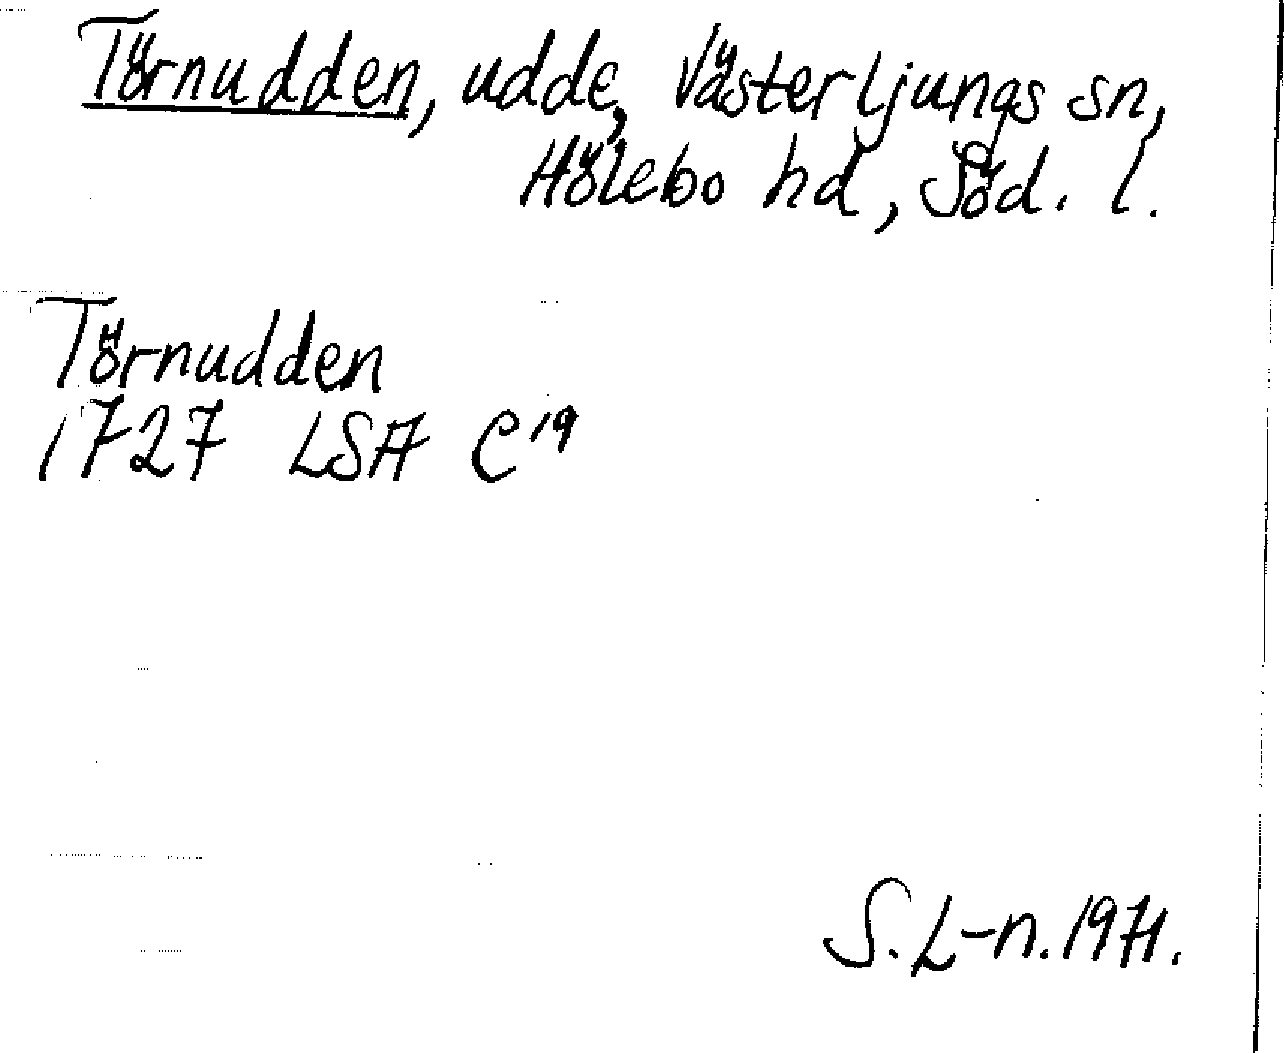 Törnudden, udde, Västerljungs sn,
Hölebo hd, Söd. l.
Törnudden
1727 LSA C19
S. L-n. 1971.